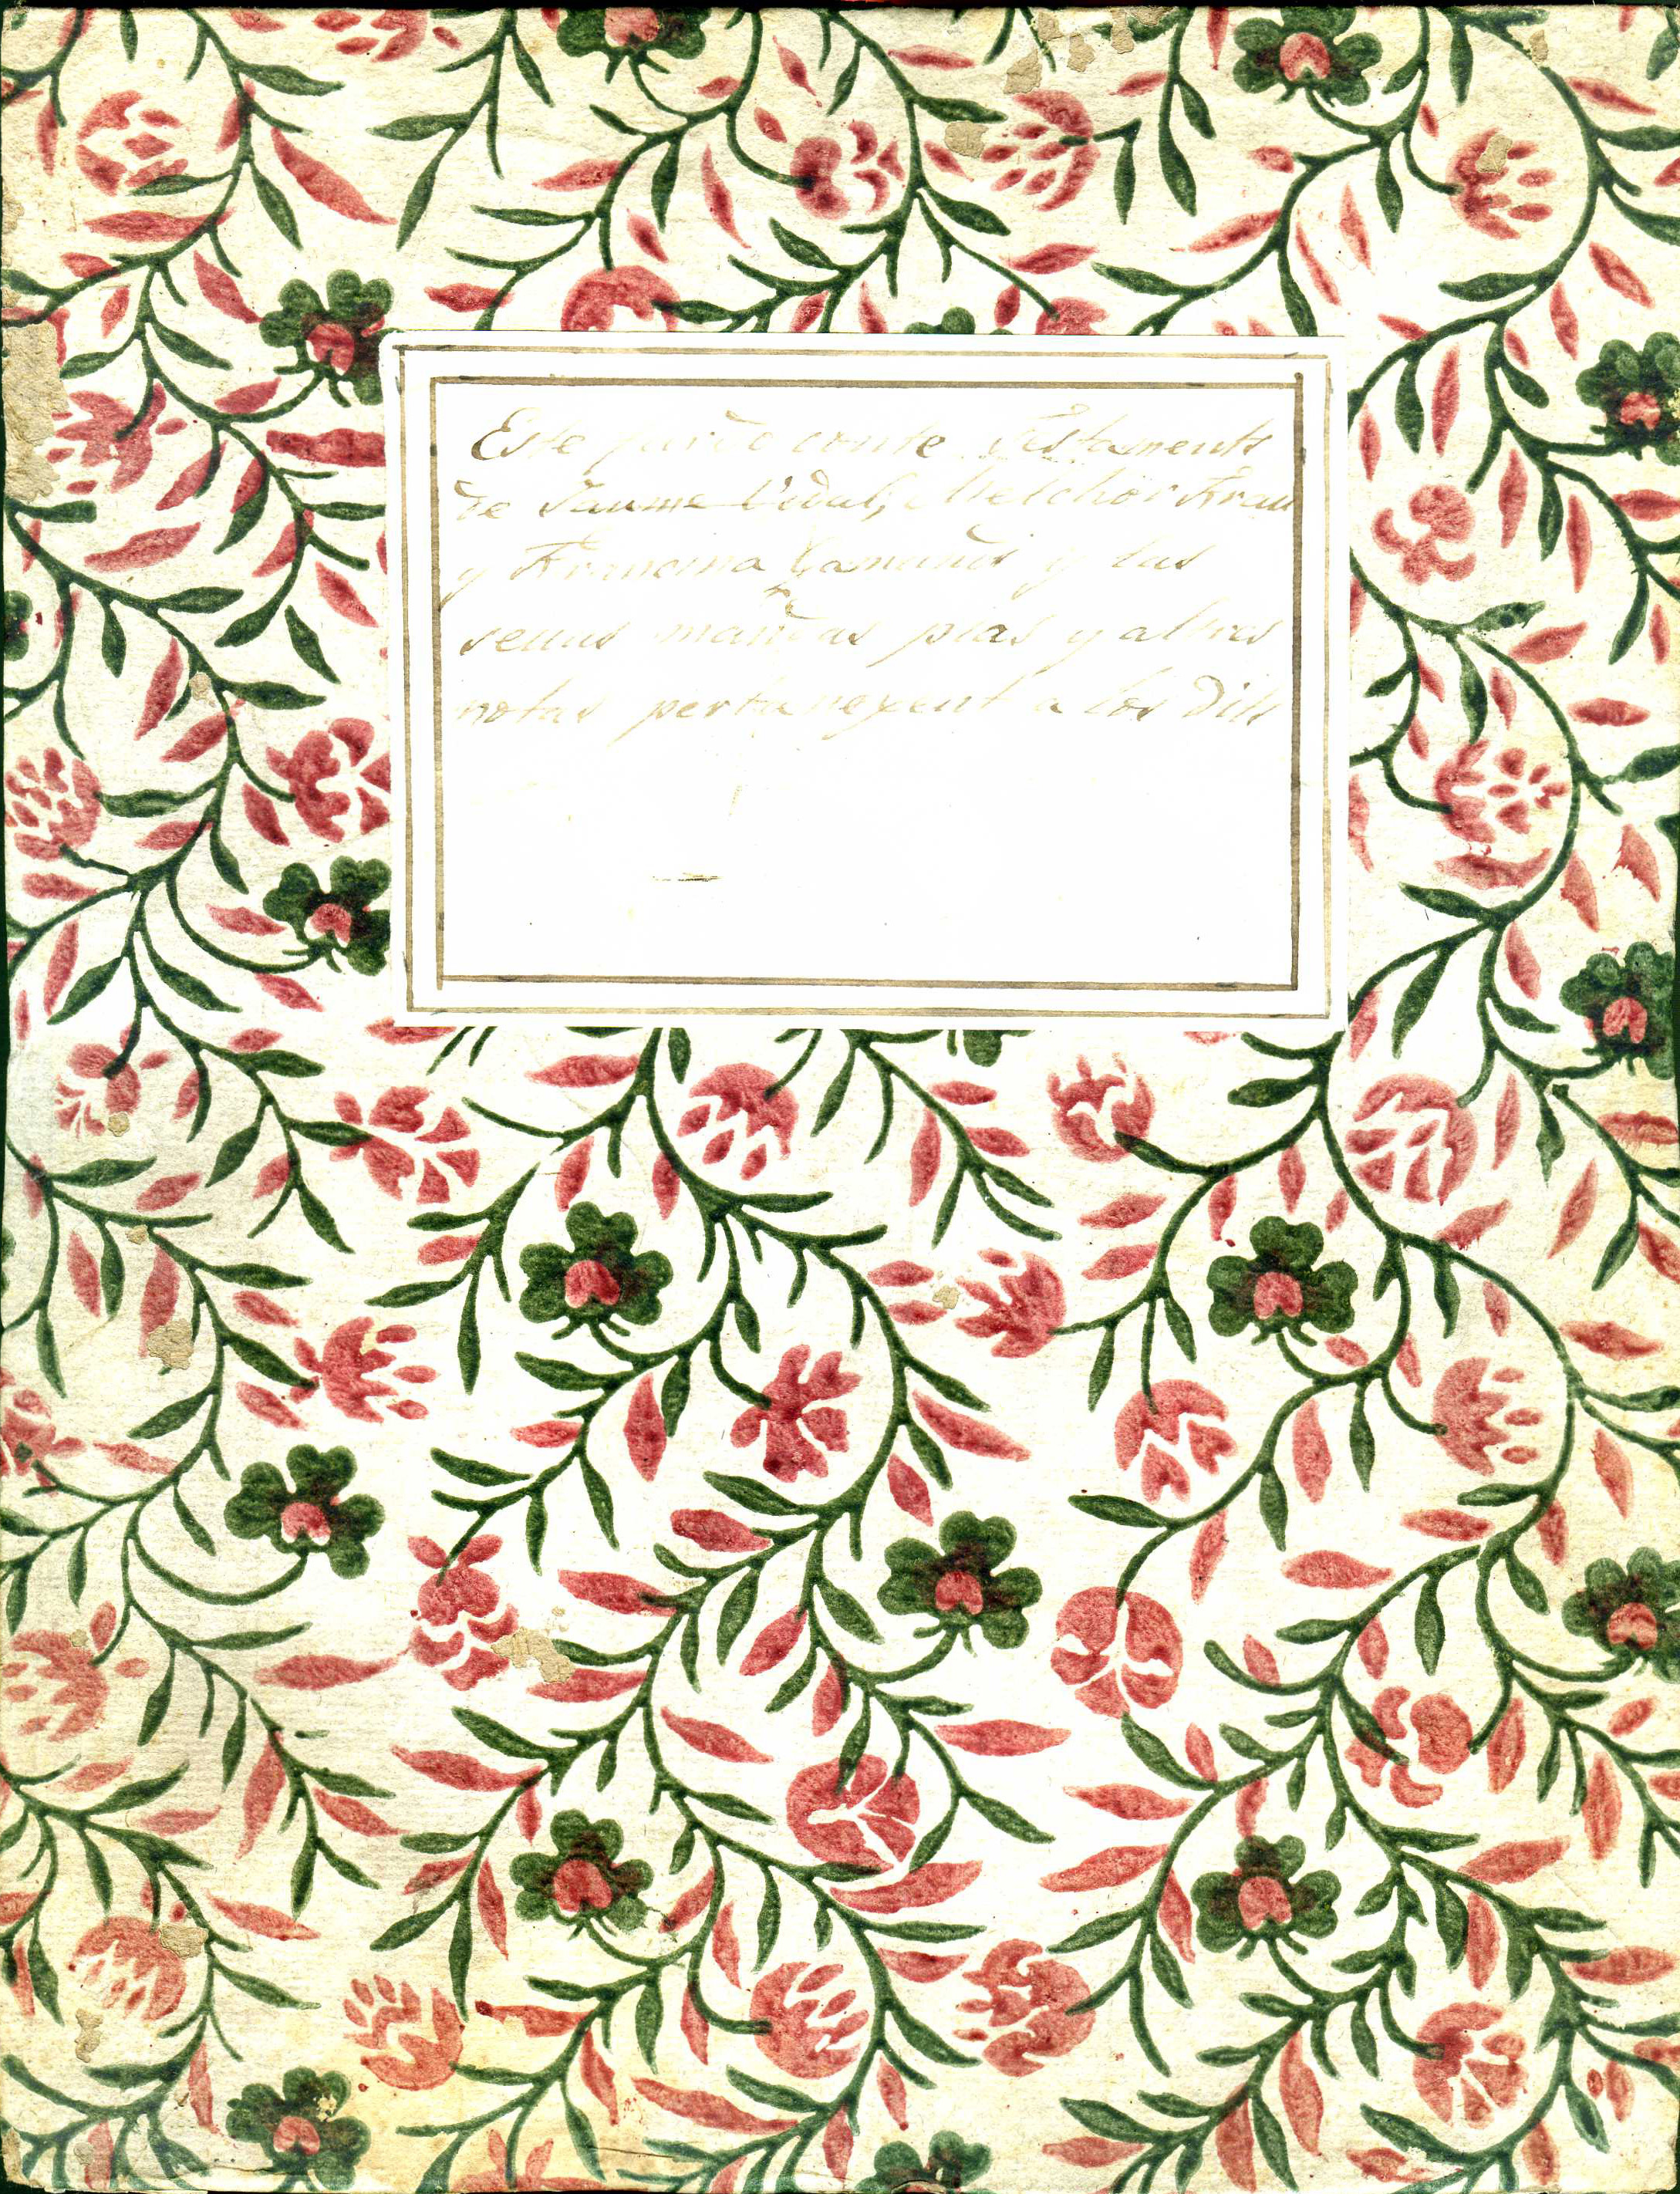 Este quarto conte Testaments
de Jaume Vidal, Melchor Arau
y Francina Gamundi y las
seuas mandas pias y altres
notas pertanexent a los dits